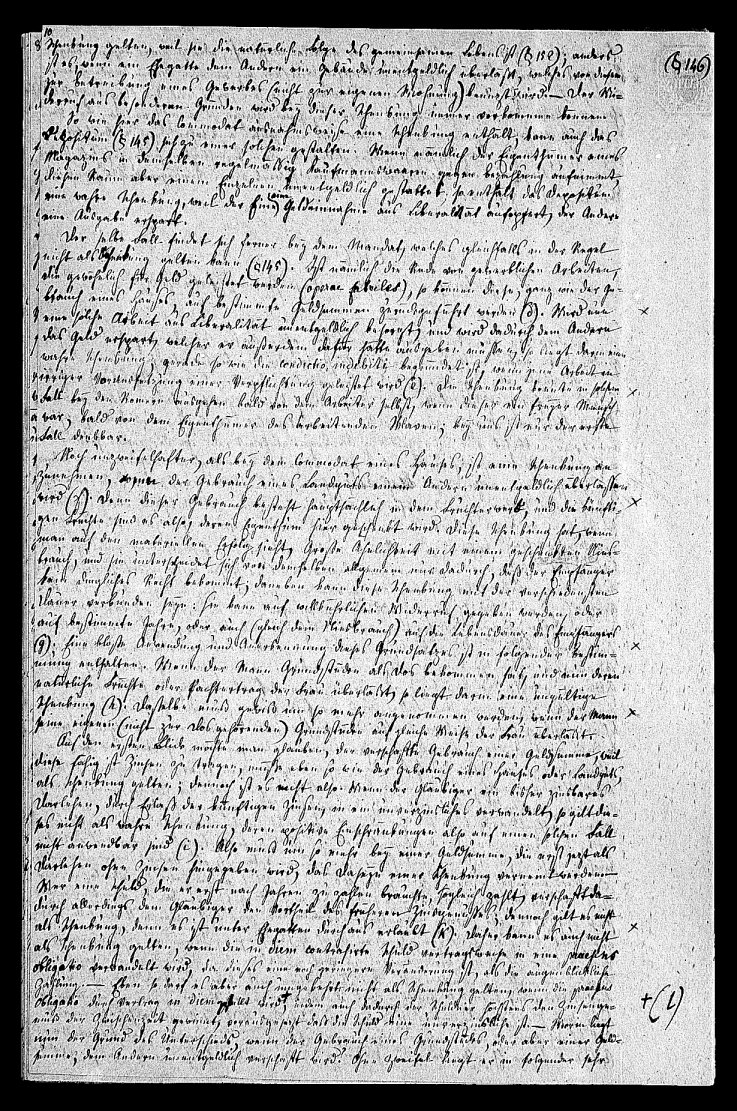 10
Schenkung gelten, weil sie die natürliche Folge des gemeinsamen Lebens ist (§ 152); anders
ist es, wenn ein Ehegatte dem Andern ein Gebäude unentgeldlich überläßt, welches von diesem
zur Betreibung eines Gewerbes (nicht zur eigenen Wohnung) benutzt wird. — Der Wi-
derruf aus besonderen Gründen wird bey dieser Schenkung immer vorkommen können.
(§ 146)
So wie hier das Commodat ausnahmsweise eine Schenkung enthält, kann auch das
Depositum (§ 145) sich zu einer solchen gestalten. Wenn nämlich der Eigenthümer eines
Magazins in demselben regelmäßig Kaufmannswaaren gegen Bezahlung aufnimmt,
diesen Raum aber einem Einzelnen unentgeldlich gestattet, so enthält das Depositum
eine wahre Schenkung, weil der Eine eine Geldeinnahme aus Liberalität aufopfert, der Andere
eine Ausgabe erspart.
Der selbe Fall findet sich ferner bey dem Mandat, welches gleichfalls in der Regel
nicht als Schenkung gelten kann (§ 145). Ist nämlich die Rede von gewerblichen Arbeiten,
die gewöhnlich für Geld geleistet werden (operae fabriles), so können diese, ganz wie der Ge-
brauch eines Hauses, auf bestimmte Geldsummen zurückgeführt werden (d). Wird nun
eine solche Arbeit aus Liberalität unentgeldlich besorgt, und wird dadurch dem Andern
das Geld erspart, welches er außerdem dafür hätte ausgeben müssen, so liegt darin eine
wahre Schenkung, gerade so wie die condictio indebiti begründet ist, wenn jene Arbeit in
irriger Voraussetzung einer Verpflichtung geleistet wird (e). Die Schenkung konnte in solchem
Fall bey den Römern ausgehen bald von dem Arbeiter selbst, wenn dieser ein freyer Mensch
war, bald von dem Eigenthümer des arbeitenden Sklaven; bey uns ist nur der erste
Fall denkbar.
Noch unzweifelhafter, als bey dem Commodat eines Hauses, ist eine Schenkung an-
zunehmen, wenn der Gebrauch eines Landguts einem Andern unentgeldlich überlassen
wird (f). Denn dieser Gebrauch besteht hauptsächlich in dem Fruchterwerb, und die künfti-
gen Früchte sind es also, deren Eigenthum hier geschenkt wird. Diese Schenkung hat, wenn
man auf den materiellen Erfolg sieht, große Ähnlichkeit mit einem geschenkten Nies-
brauch, und sie unterscheidet sich von demselben allgemein nur dadurch, daß der Empfänger
kein dingliches Recht bekommt; daneben kann diese Schenkung mit der verschiedensten
Dauer verbunden seyn: sie kann auf willkührlichen Widerruf gegeben werden, oder
auf bestimmte Jahre, oder auch (gleich dem Niesbrauch) auf die Lebensdauer des Empfängers
(g). Eine bloße Anwendung und Anerkennung dieses Grundsatzes ist in folgender Bestim-
mung enthalten. Wenn der Mann Grundstücke als Dos bekommen hat, und nun deren
natürliche Früchte oder Pachtertrag der Frau überläßt, so liegt darin eine ungültige
Schenkung (h). Dasselbe muß gewiß um so mehr angenommen werden, wenn der Mann
seine eigenen (nicht zur Dos gehörenden) Grundstücke auf gleiche Weise der Frau überläßt.
Auf den ersten Blick möchte man glauben, der verschaffte Gebrauch einer Geldsumme, weil
diese fähig ist Zinsen zu tragen, müsse eben so wie der Gebrauch eines Hauses oder Landguts,
als Schenkung gelten; dennoch ist es nicht also. Wenn der Gläubiger ein bisher zinsbares
Darlehen, durch Erlaß der künftigen Zinsen, in ein unverzinsliches verwandelt, so gilt die-
ses nicht als wahre Schenkung, deren positive Einschränkungen also auf einen solchen Fall
nicht anwendbar sind (i). Also muß um so mehr bey einer Geldsumme, die erst jetzt als
Darlehen ohne Zinsen hingegeben wird, das Daseyn einer Schenkung verneint werden. —
Wer eine Schuld, die er erst nach Jahren zu zahlen brauchte, sogleich zahlt, verschafft da-
durch allerdings dem Gläubiger den Vortheil des früheren Zinsgenusses; dennoch gilt es nicht
als Schenkung, denn es ist unter Ehegatten durchaus erlaubt (k). Daher kann es auch nicht
als Schenkung gelten, wenn die in diem contrahirte Schuld vertragsweise in eine praesens
obligatio verwandelt wird, da dieses eine noch geringere Veränderung ist, als die augenblickliche
Zahlung. — Eben so darf es aber auch umgekehrt nicht als Schenkung gelten, wenn die praesens
obligatio durch Vertrag in diem gesetzt wird, indem auch dadurch der Schuldner höchstens den Zinsenge-
+ (l)
nuß der Zwischenzeit gewinnt, vorausgesetzt daß die Schuld eine unverzinsliche ist. — Worin liegt
nun der Grund des Unterschieds, wenn der Gebrauch eines Grundstücks, oder aber einer Geld-
summe, dem Andern unentgeldlich verschafft wird? Ohne Zweifel liegt er in folgender sehr